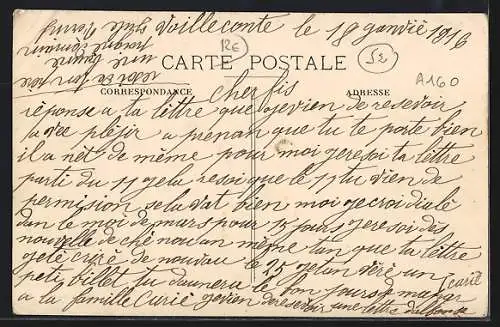 Voilleconte le 18 janvié 1916
RE
52
A160
CARTE POSTALE
CORRESPONDANCE
ADRESSE
cher fis
réponse a ta lettre que je vien de resevoir
avec plésir a prenan que tu te porte bien
il a nét de même pour moi je resoi ta lettre
parti du 11 je la resoi que le 17 tu vien de
permission sela vat bien moi je croi d alé
dan le moi de mars pour 15 jours je resoi dés
nouvelle de ché nou an même tan que ta lettre
de nouvau le 25 je tan véré un
peti billet tu daunera le bon jours
a la famille Curié je vien de resevoir une lettre d alfonse